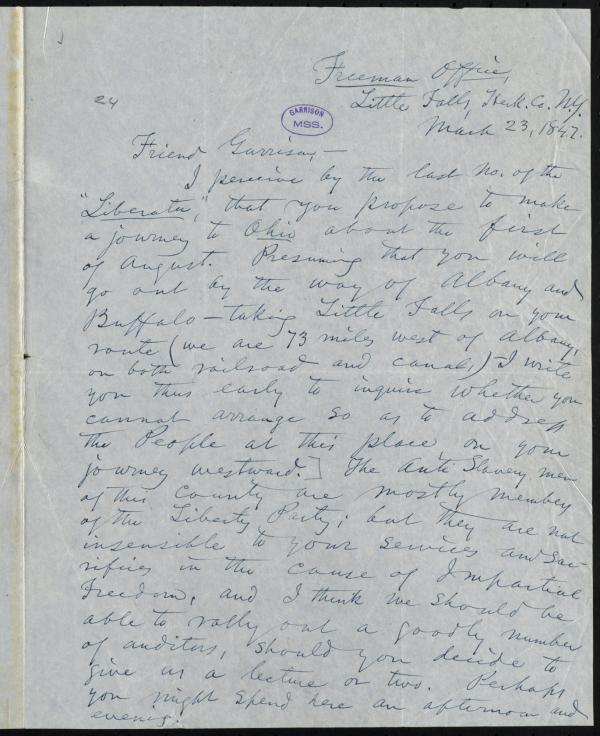 24
GARRISON
MSS.
Freeman Office,
Little Falls, Herk. Co. N.Y.
March 23, 1847.
Friend Garrison,—
I perceive by the last No. of the
"Liberator," that you propose to make
a journey to Ohio about the first
of August. Presuming that you will
go out by the way of Albany and
Buffalo—taking Little Falls on your
route (we are 73 miles west of Albany,
on both railroad and canal,)—I write
you thus early to inquire whether you
cannot arrange so as to address
the People at this place, on your
journey westward.] The Anti Slavery men
of this County are mostly members
of the Liberty Party; but they are not
insensible to your services and sac-
rifices in the cause of Impartial
Freedom, and I think we should be
able to rally out a goodly number
of auditors, should you decide to
give us a lecture or two. Perhaps
you might spend here an afternoon and
evening.